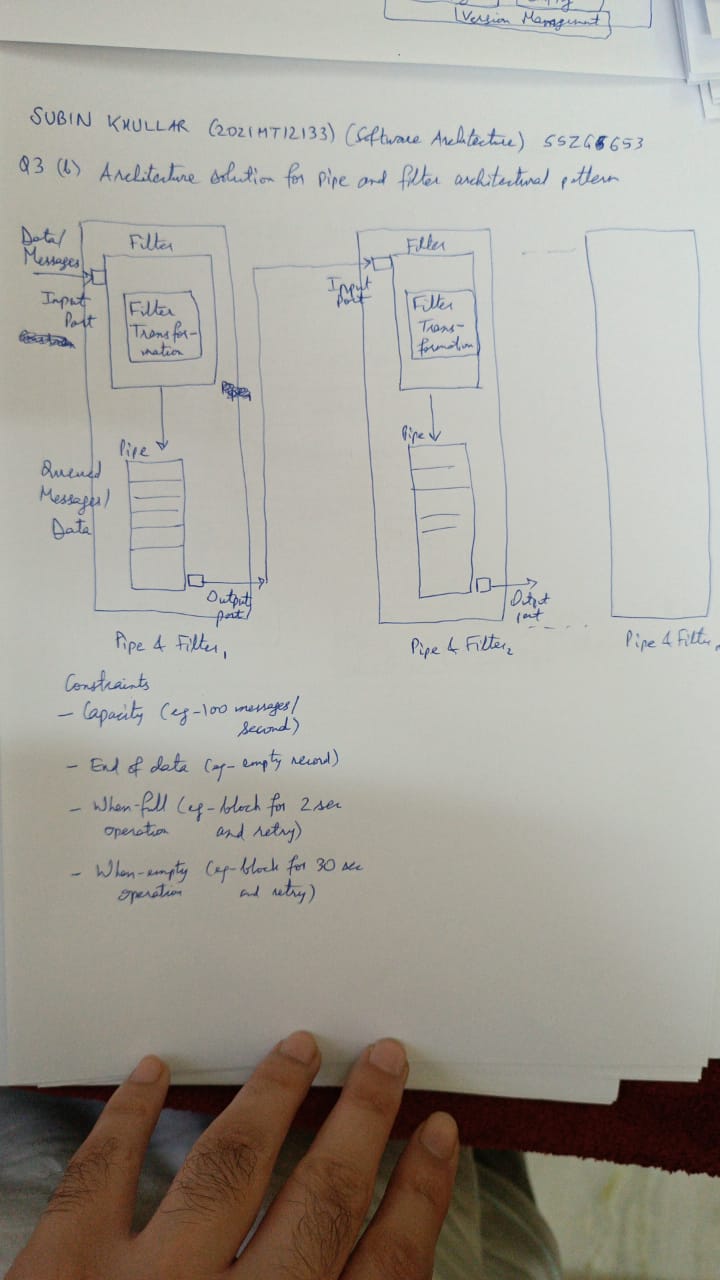 Version Management
SUBIN KHULLAR (2021MT12133) (Software Architecture) SSZG653
Q3 (b) Architecture solution for pipe and filter architectural pattern
Data/
Messages
Input
Port
Filter
Filter
Transfor-
mation
Pipe
Queued
Messages/
Data
Output
port
Pipe & Filter1
Input
Port
Filter
Filter
Trans-
formation
Pipe
Output
port
Pipe & Filter2
Pipe & Filter
Constraints
- Capacity (eg-100 messages/
second)
- End of data (eg- empty record)
- When-full (eg- block for 2 sec
operation and retry)
- When-empty (eg-block for 30 sec
operation and retry)